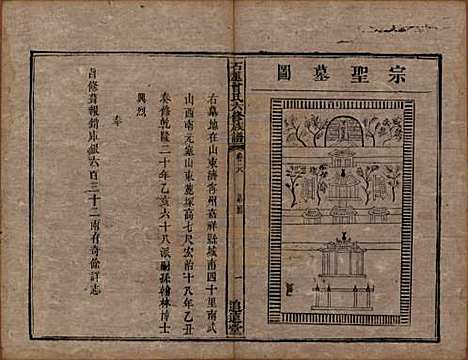 宗聖墓圖
曾氏六修族譜
卷之八
墓圖
一
追遠堂
右墓地在山東濟寧州嘉祥縣城南四十里南武
山西南元寨山東麓塚高七尺宏治十八年乙丑
奏修乾隆二十年乙亥六十八派嗣孫翰林博士
興烈
奉
旨修葺報銷庫銀六百三十二兩有奇餘詳志